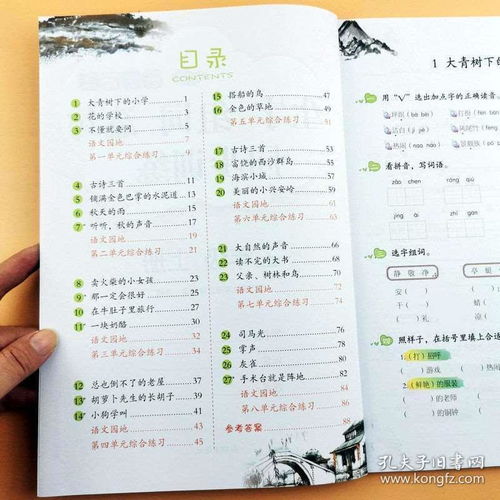 目录
CONTENTS
1 大青树下的小学 1
2 花的学校 3
3 不懂就要问 5
语文园地 7
第一单元综合练习 9
4 古诗三首 11
5 铺满金色巴掌的水泥道 13
6 秋天的雨 15
7 听听，秋的声音 17
语文园地 19
第二单元综合练习 21
8 卖火柴的小女孩 23
9 那一定会很好 25
10 在牛肚子里旅行 27
11 一块奶酪 30
语文园地 32
第三单元综合练习 34
12 总也倒不了的老屋 37
13 胡萝卜先生的长胡子 39
14 小狗学叫 41
语文园地 43
第四单元综合练习 45
15 搭船的鸟 47
16 金色的草地 49
第五单元综合练习 51
17 古诗三首 53
18 富饶的西沙群岛 55
19 海滨小城 57
20 美丽的小兴安岭 59
语文园地 61
第六单元综合练习 63
21 大自然的声音 66
22 读不完的大书 68
23 父亲、树林和鸟 70
语文园地 72
第七单元综合练习 74
24 司马光 76
25 掌声 78
26 灰雀 80
27 手术台就是阵地 82
语文园地 84
第八单元综合练习 86
参考答案 88
1 大青树下的
用“√”选出加点字的正确读音。
看拼音，写词语。
zǎo chen
róng qiú
jīng
ǎi
zhāo
选字组词。
静 敬 净
安（
干（
）礼
照样子，在括号里填上合适
1.（打）招呼
（ ）游戏
2.（鲜艳）的服装
（ ）的老师
（ ）的铜钟
孔夫子旧书网
www.kongfz.com